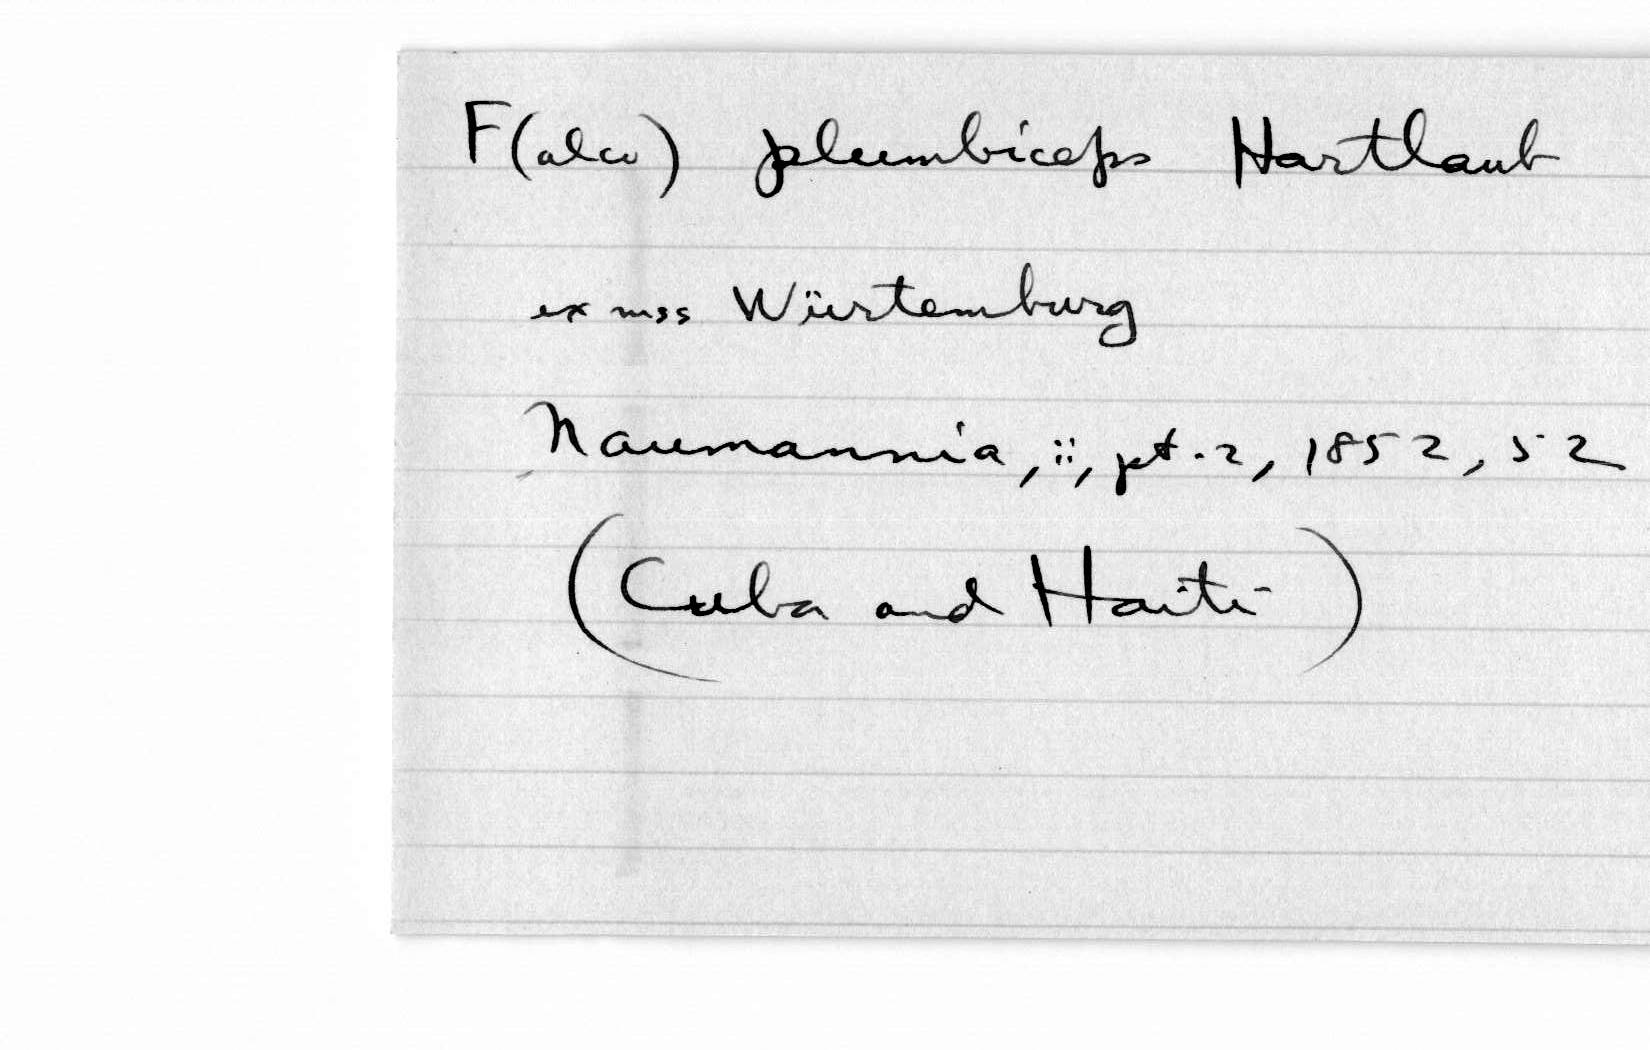 F(alco) plumbiceps Hartlaub
ex mss Würtemburg
Naumannia, ii, pt. 2, 1852, 52
(Cuba and Haiti)